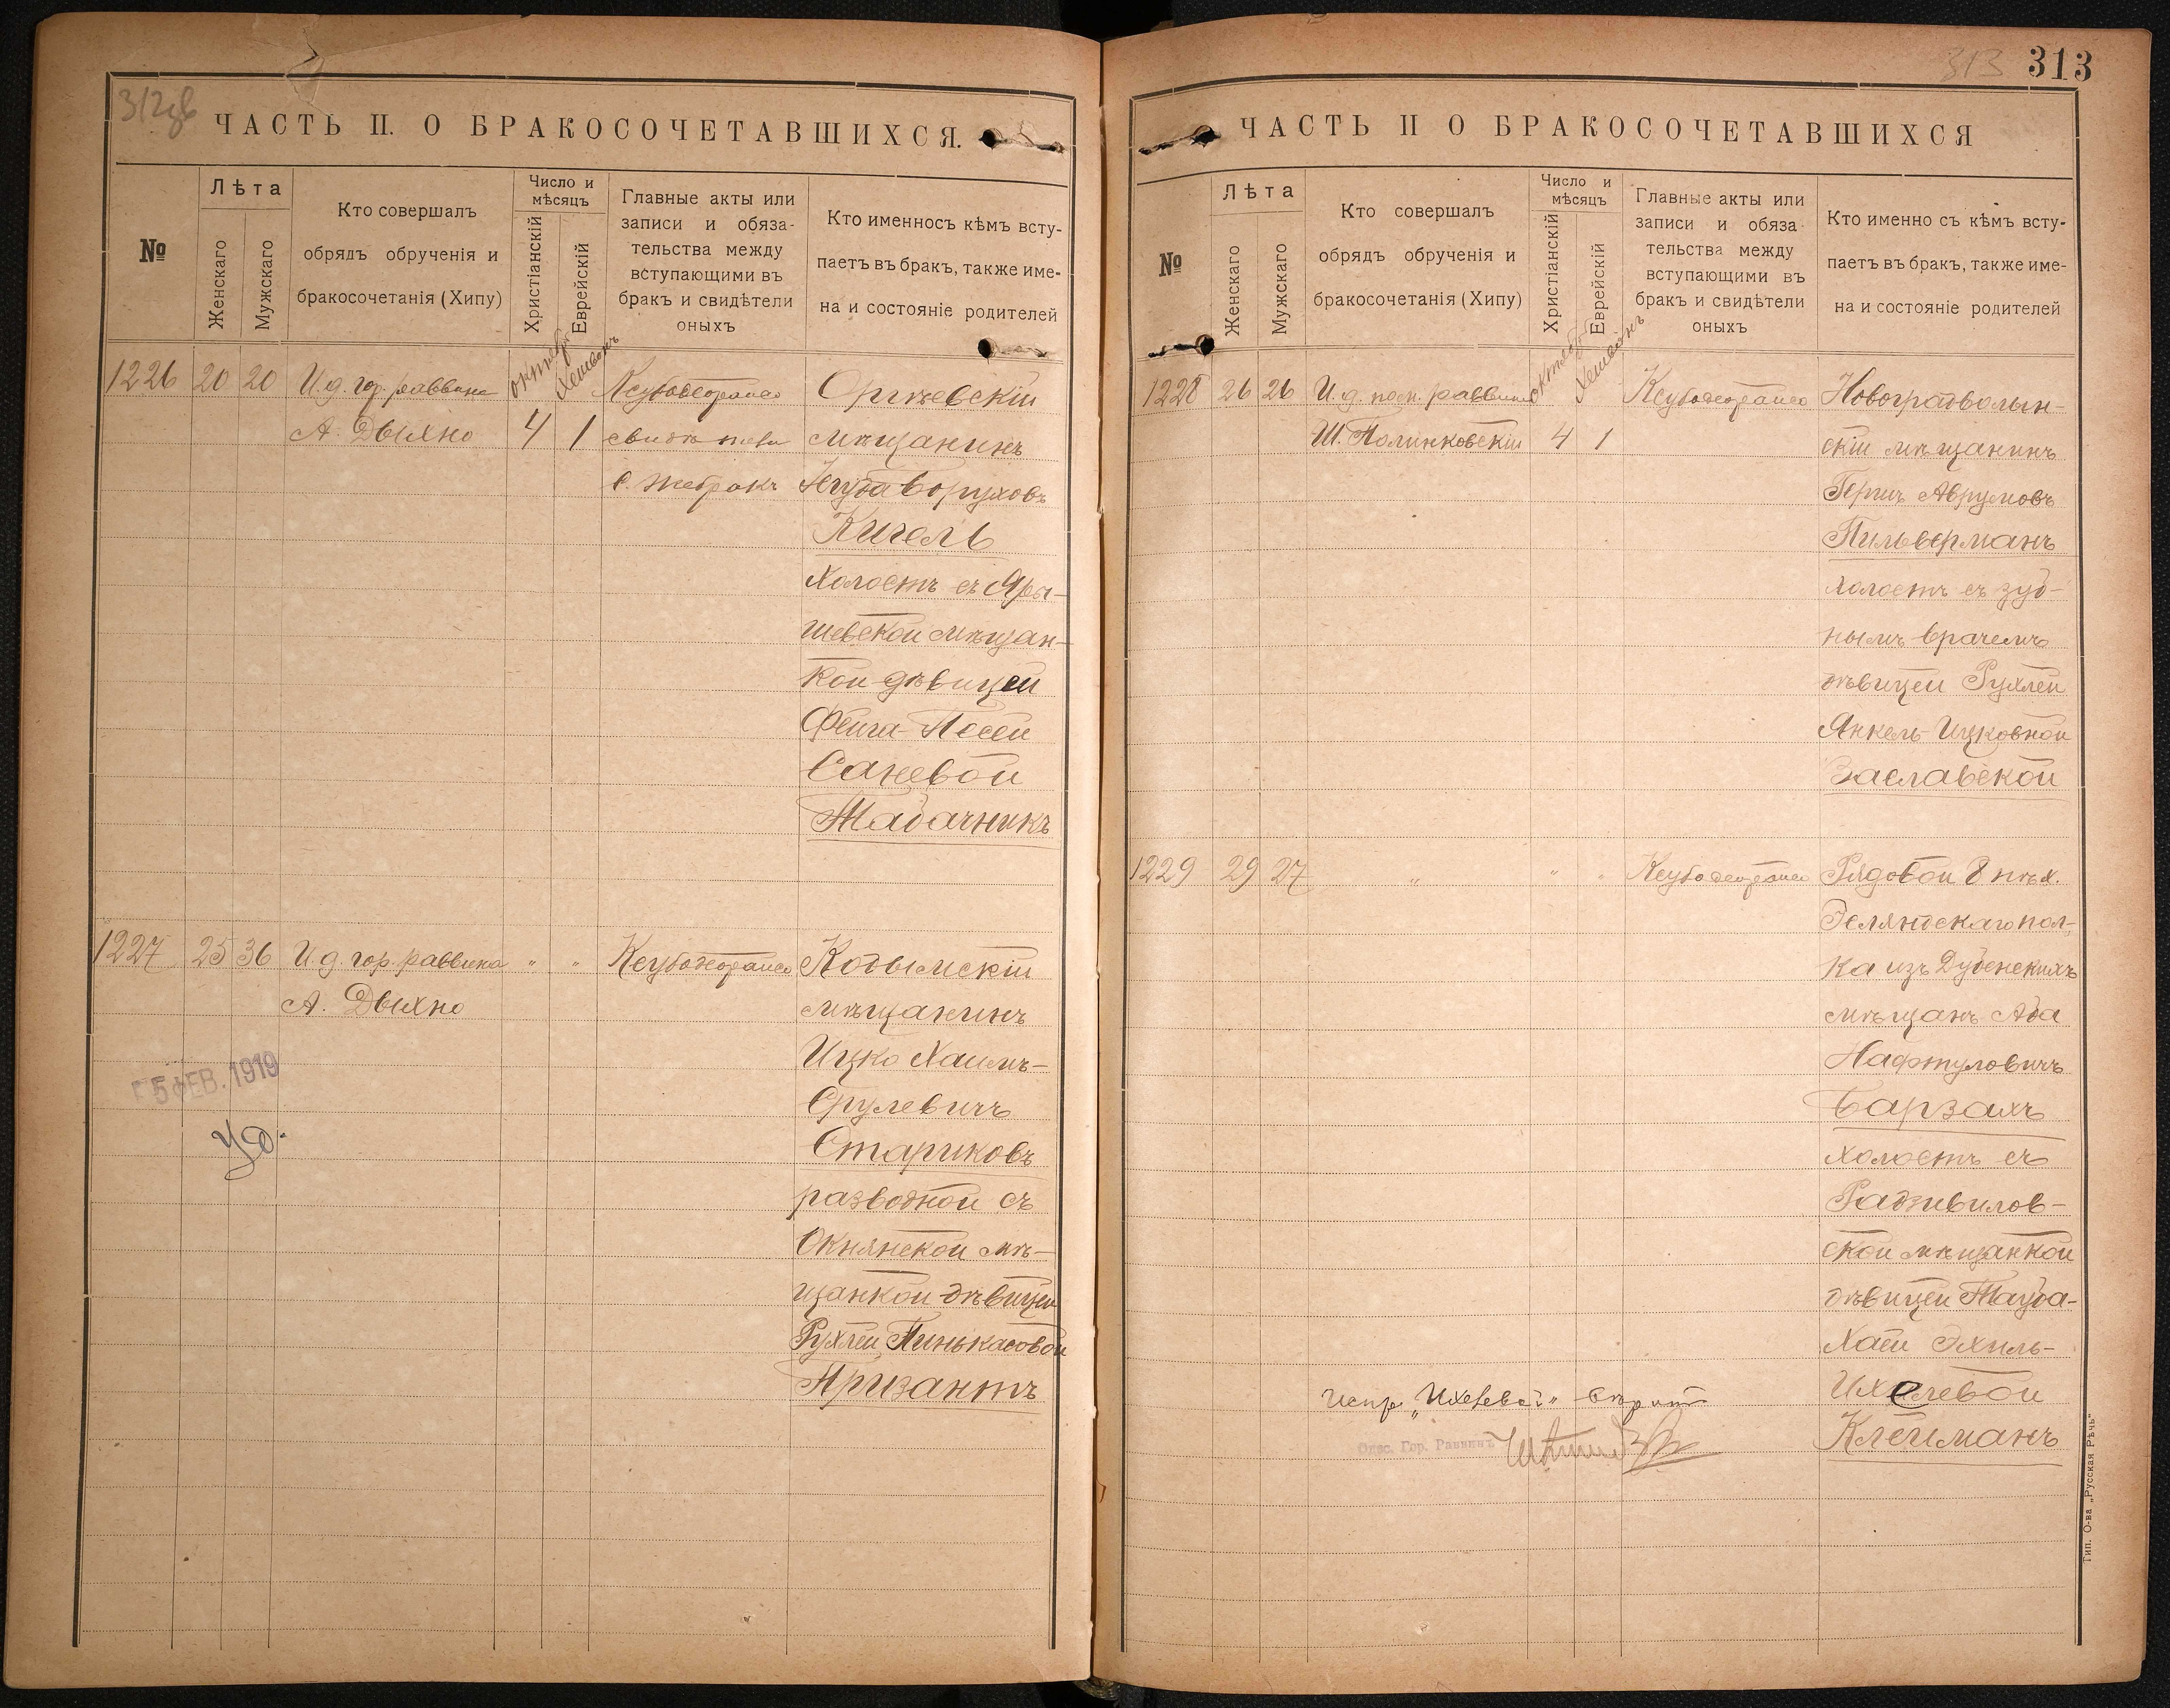 312об
ЧАСТЬ II. О БРАКОСОЧЕТАВШИХСЯ.
№
Лѣта
Женскаго
Мужскаго
Кто совершалъ
обрядъ обрученія и
бракосочетанія (Хипу)
Число и
мѣсяцъ
Христіанскій
Еврейскій
Главные акты или
записи и обяза-
тельства между
вступающими въ
бракъ и свидѣтели
оныхъ
Кто именносъ кѣмъ всту-
паетъ въ бракъ, также име-
на и состояніе родителей
1226 20 20 И. д. гор. раввина октября Хешвонъ
А. Дыхно 4 1
свидѣтели
мѣщанинъ
Боруховъ
Кигель
Холостъ съ Яры-
шевской мѣщан-
кой дѣвицей
Фейга-Песей
Саневой
Табачникъ
1227 25 36 И. д. гор. раввина " " Кодымскій
А. Дыхно мѣщанинъ
Ицко Хаимъ-
Срулевичъ
Стариковъ
разводной съ
Окнянской мѣ-
щанкой дѣвицей
Рухлей Пинькасовой
Призантъ
5 ФЕВ. 1919
313 313
ЧАСТЬ II О БРАКОСОЧЕТАВШИХСЯ
№
Лѣта
Женскаго
Мужскаго
Кто совершалъ
обрядъ обрученія и
бракосочетанія (Хипу)
Число и
мѣсяцъ
Христіанскій
Еврейскій
Главные акты или
записи и обяза
тельства между
вступающими въ
бракъ и свидѣтели
оныхъ
Кто именно съ кѣмъ всту-
паетъ въ бракъ, также име-
на и состояніе родителей
1228 26 26 И. д. пом. раввина октября Хешвонъ Новоградволын-
Ш. Полинковскій 4 1 скій мѣщанинъ
Гершъ Аврумовъ
Пильверманъ
холостъ съ зуб-
нымъ врачемъ
дѣвицей Рухлей
Янкель-Ицковной
Заславской
1229 29 27 " " " Рядовой 8 пѣх.
Эстляндскаго пол-
ка изъ Дубенскихъ
мѣщанъ Аба
Нафтуловичъ
Барзахъ
холостъ съ
Радзивилов-
ской мѣщанкой
дѣвицей Тауба-
Хаей Эхиль-
Ихелевой
Клейманъ
Испр. „Ихелевой"
Одес. Гор. Раввинъ
Тип. О-ва „Русская Рѣчь"